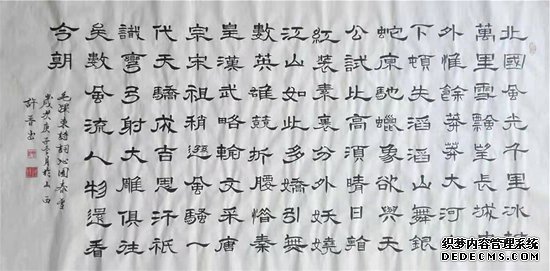 北國風光千里冰封
萬里雪飄望長城内
外惟餘莽莽大河上
下頓失滔滔山舞銀
蛇原馳蠟象欲與天
公試比高須晴日看
紅裝素裹分外妖嬈
江山如此多嬌引無
數英雄競折腰惜秦
皇漢武略輸文采唐
宗宋祖稍遜風騷一
代天驕成吉思汗祇
識彎弓射大雕俱往
矣數風流人物還看
今朝
毛澤東詩詞沁園春雪
歲次庚子冬月於山西
許晉
织梦内容管理系统
DEDECMS.COM